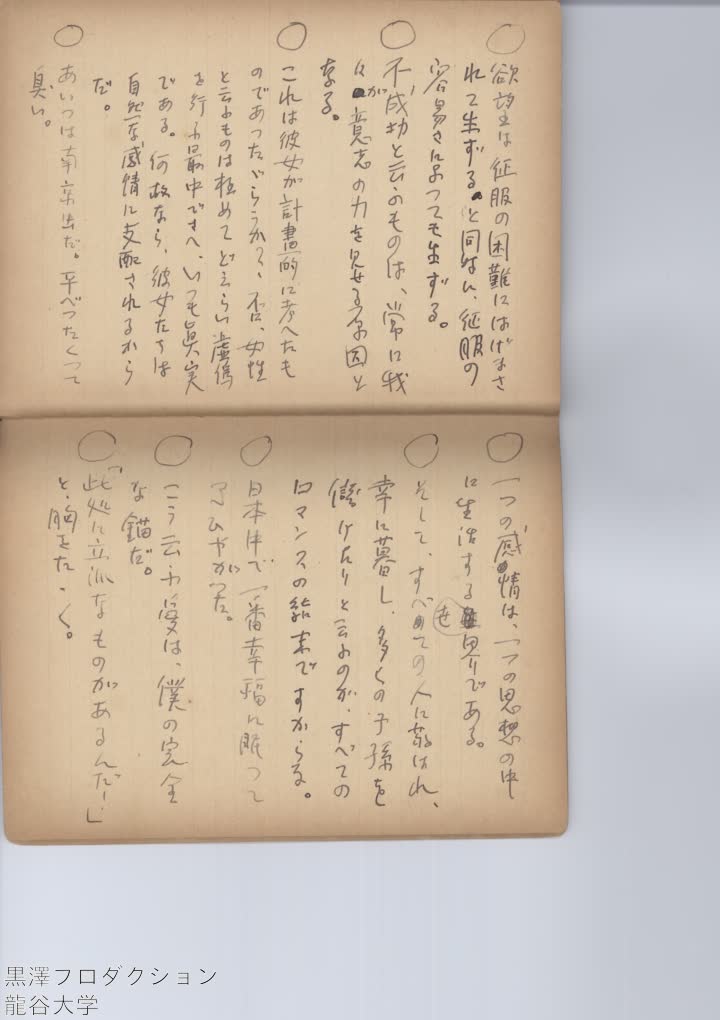 欲望は征服の困難にはげまさ
れて生ずると同時に、征服の
容易さによつても生ずる。
不成功と云ふものは、常に我
が意志の力を見せる原因と
なる。
これは彼女が計畫的に考へたも
のであつたゞらうか？、否、女性
と云ふものは極めてどえらい虚偽
を行ふ最中でさへ、いつも眞実
である。何故なら、彼女たちは
自然な感情に支配されるから
だ。
あいつは南京虫だ。平べつたくつて
臭い。
一つの感情は、一つの思想の中
に生活する世界である。
そして、すべての人に敬はれ、
幸に暮し、多くの子孫を
儲けたりと云ふのが、すべての
ロマンスの結末ですからな。
日本中で一番幸福に眠つて
ひやがつた。
こう云ふ愛は、僕の完全
な錨だ。
「此処に立派なものがあるんだ！」
と、胸をたゝく。
黒澤フロダクション
龍谷大学